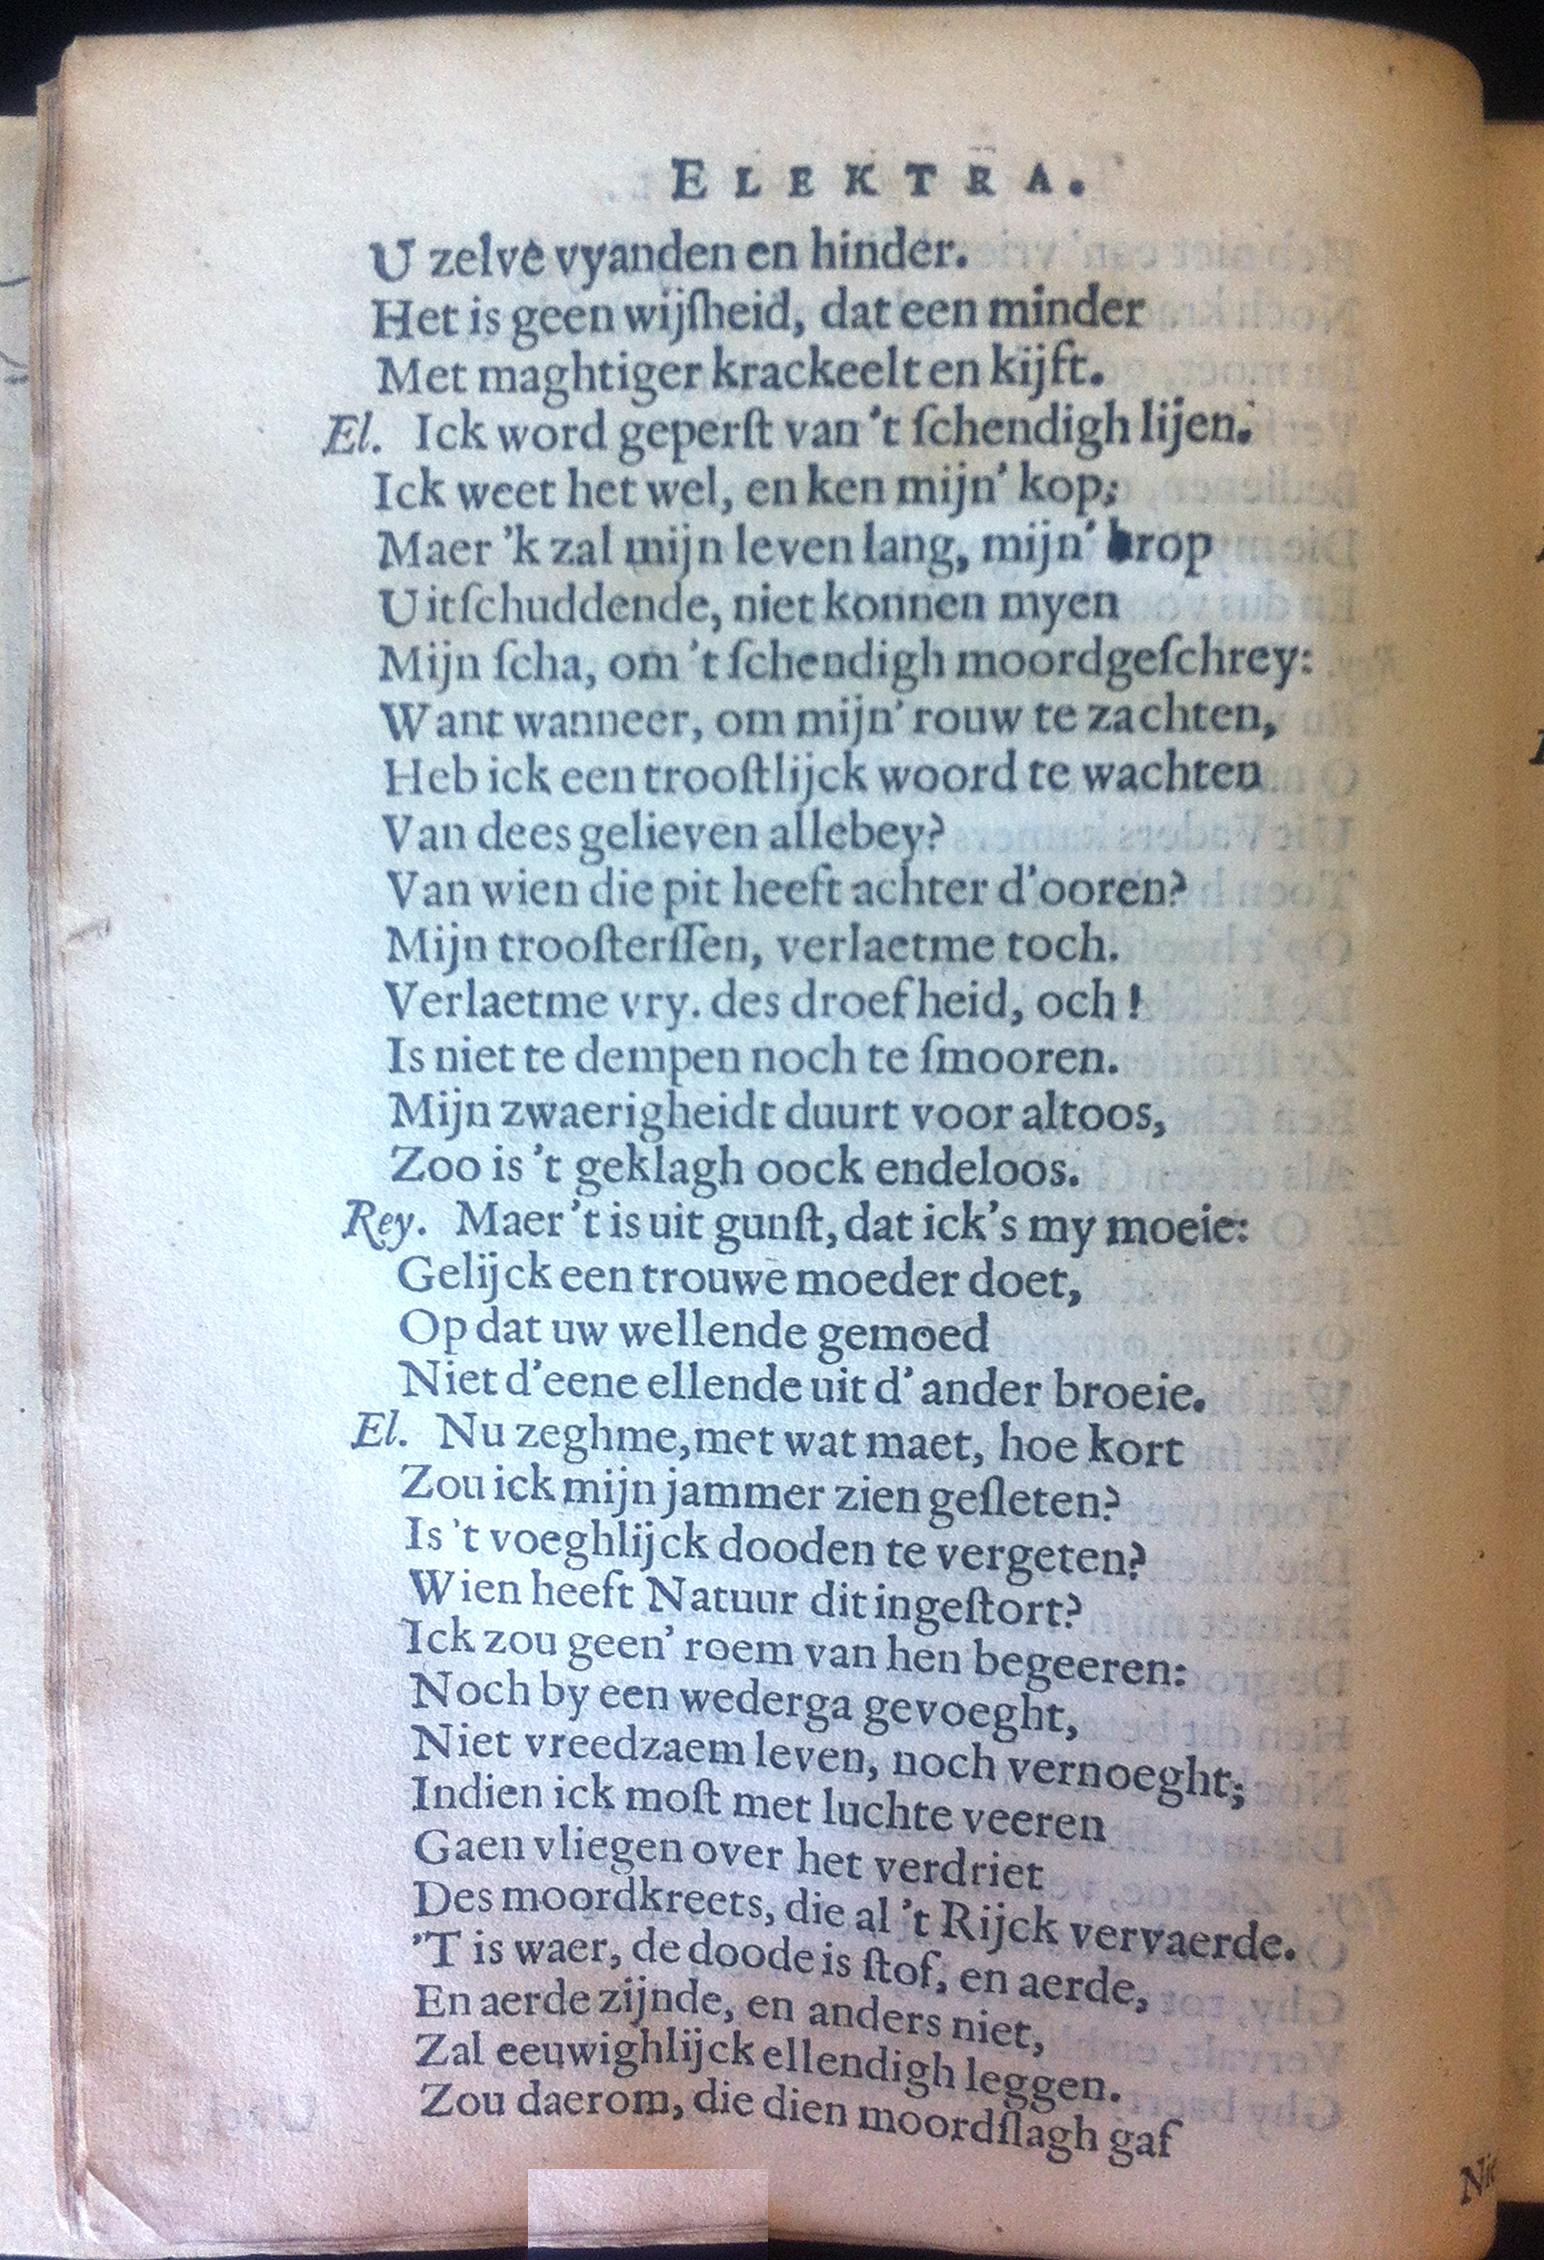 ELEKTRA.
U zelve vyanden en hinder.
Het is geen wijſheid, dat een minder
Met maghtiger krackeelt en kijft.
El. Ick word geperſt van 't ſchendigh lijen.
Ick weet het wel, en ken mijn' kop;
Maer 'k zal mijn leven lang, mijn' krop
Uitſchuddende, niet konnen myen
Mijn ſcha, om 't ſchendigh moordgeſchrey:
Want wanneer, om mijn' rouw te zachten,
Heb ick een trooſtlijck woord te wachten
Van dees gelieven allebey?
Van wien die pit heeft achter d'ooren?
Mijn trooſterſſen, verlaetme toch.
Verlaetme vry. des droefheid, och!
Is niet te dempen noch te ſmooren.
Mijn zwaerigheidt duurt voor altoos,
Zoo is 't geklagh oock endeloos.
Rey. Maer 't is uit gunſt, dat ick's my moeie:
Gelijck een trouwe moeder doet,
Op dat uw wellende gemoed
Niet d'eene ellende uit d'ander broeie.
El. Nu zeghme, met wat maet, hoe kort
Zou ick mijn jammer zien geſleten?
Is 't voeghlijck dooden te vergeten?
Wien heeft Natuur dit ingeſtort?
Ick zou geen' roem van hen begeeren:
Noch by een wederga gevoeght,
Niet vreedzaem leven, noch vernoeght;
Indien ick moſt met luchte veeren
Gaen vliegen over het verdriet
Des moordkreets, die al 't Rijck vervaerde.
'T is waer, de doode is ſtof, en aerde,
En aerde zijnde, en anders niet,
Zal eeuwighlijck ellendigh leggen.
Zou daerom, die dien moordſlagh gaf